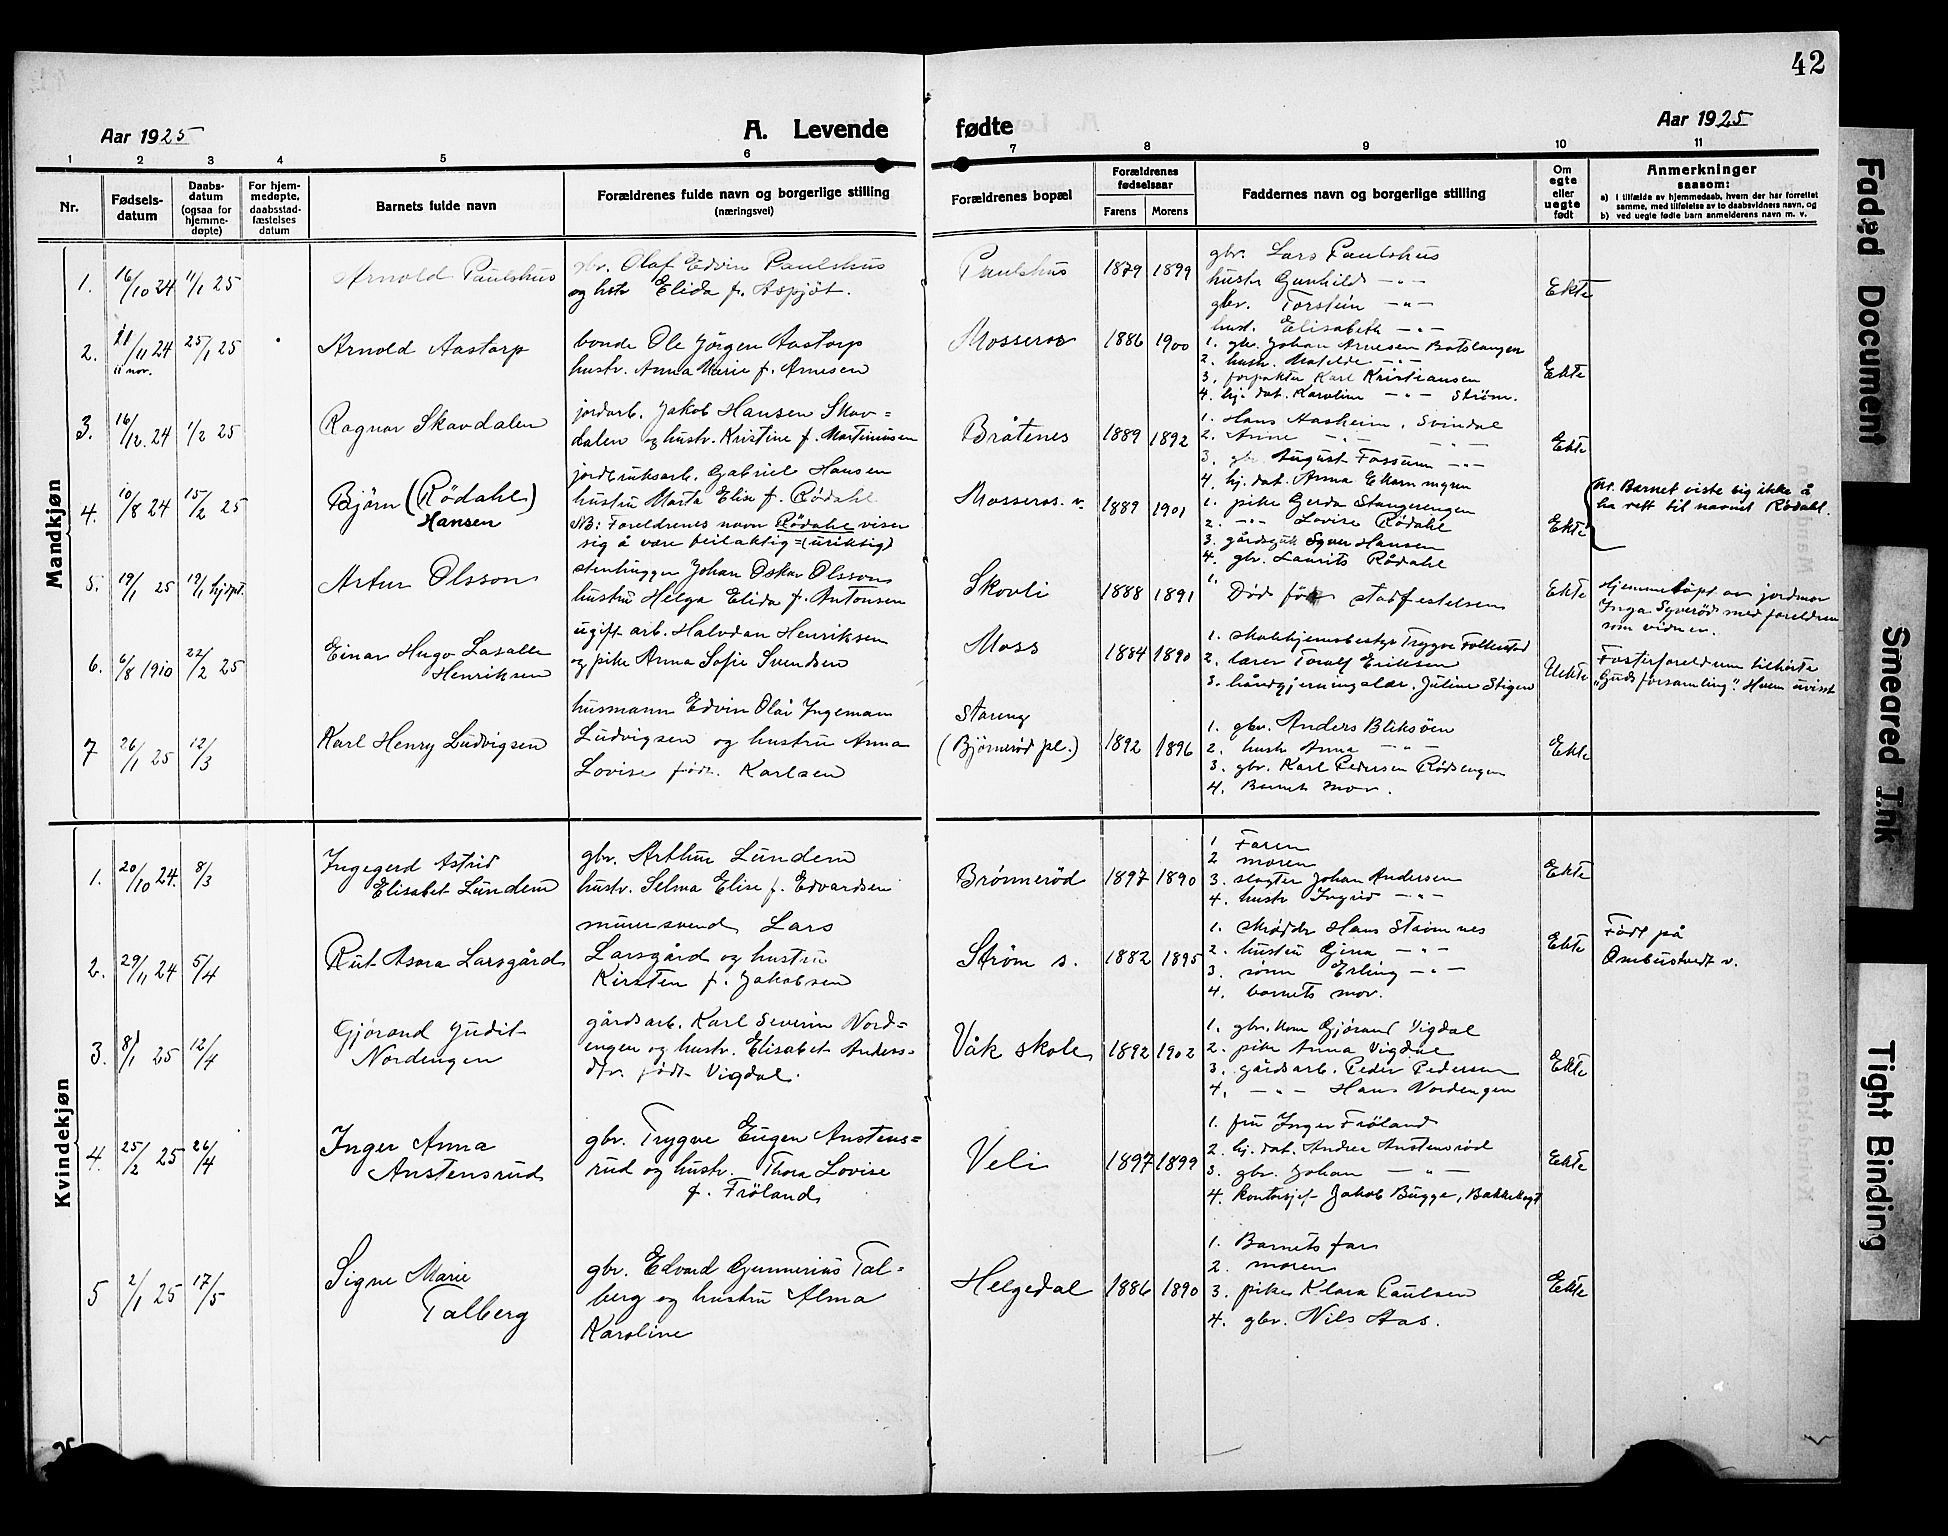 42
Aar 1925
A. Levende
fødte
Aar 1925
1 2 3 4 5 6 7 8 9 10 11
Nr.
Fødsels-
datum
Daabs-
datum
(ogsaa for
hjemme-
døpte)
For hjem-
medøpte,
daabsstad-
fæstelses
datum
Barnets fulde navn
Forældrenes fulde navn og borgerlige stilling
(næringsvei)
Forældrenes bopæl
Forældrenes
fødselsaar
Farens
Morens
Faddernes navn og borgerlige stilling
Om
egte
eller
uegte
født
Anmerkninger
saasom:
a) I tilfælde av hjemmedaab, hvem der har forrettet
samme, med tilføielse av to daabsvidners navn, og
b) ved uegte fødte barn anmelderens navn m. v.
Mandkjøn
1. 16/10 24 11/1 25
Arnold Paulshus
gbr. Olaf Edvin Paulshus
og hstr Elida f. Aspjøt.
Paulshus
1879 1899
gbr. Lars Paulshus
hustr Gunhild -"-
gbr. Torstein -"-
hust. Elisabeth -"-
Ekte
2. 21/11 24 25/1 25
11 nov.
Arnold Aastorp
bonde Ole Jörgen Aastorp
hustr. Anna Marie f. Arnesen
Mosseros
1886 1900
1. gbr. Johan Arnesen Botslangen
2. hustr. Matilde -"-
3. forpakter Karl Kristiansen
4. hj. dat. Karoline -"- Strøm.
Ekte
3. 16/12 24 1/2 25
Ragnar Skavdalen
jordarb. Jakob Hansen Skav=
dalen og hustr. Kristine f. Martiniusen
Bråtenes
1889 1892
1. Hans Aasheim, Svindal
2. Anne -"- -"-
3. gbr August Fossum -"-
4. hj. dat. Anna Ekornmyren
Ekte
4. 10/8 24 15/2 25
Björn (Rödahl)
Hansen
jordbruksarb. Gabriel Hansen
hustru Marta Elise f. Rödahl
NB: Foreldrenes navn Rödahl viser
sig å være feilaktig = (uriktig)
Mosseros. v.
1889 1901
1. pike Gerda Stangerengen
2. -"- Lovise Rödahl
3. gårdsgut Syver Hansen
4. gbr. Laurits Rödahl
Ekte
Nr. Barnet viste sig ikke å
ha rett til navnet Rödahl.
5. 19/1 25 19/1 hjdpt.
Artur Olsson
stenhugger Johan Oskar Olsson
hustru Helga Elida f. Antonsen
Skovli
1888 1891
1.
Död før stadfestelsen
Ekte
Hjemmedöpt av jordmor
Inga Syveröd med foreldrene
som vidner.
6. 6/8 1910 22/2 25
Einar Hugo Lasalle
Henriksen
ugift arb. Halvdan Henriksen
og pike Anna Sofie Svendsen
Moss
1884 1890
1. skolehjemsbestyr Trygve Folkestad
2. lærer Toralf Eriksen
3. håndgjerningslær. Juline Stigen
Uekte
Fosterforeldrene tilhörte
"Guds forsamling". Hvem uvisst
7 26/1 25 12/3
Karl Henry Ludvigsen
husmann Edvin Olai Ingemann
Ludvigsen og hustru Anna
Lovise född Karlsen
Stareng
(Bjørnerød pl.)
1892 1896
1. gbr. Anders Bliksöen
2. hustr Anna -"-
3. gbr. Karl Pedersen Rödsengen
4. Barnets mor.
Ekte
Kvindekjøn
1. 20/10 24. 8/3
Ingegerd Astrid
Elisabet Lundem
gbr. Arthur Lundem
hustr. Selma Elise f. Edvardsen
Brönnerød
1897 1890
1 Faren
2 moren
3. slagter Johan Andersen
4. hustr Ingrid -"-
Ekte
2. 29/11 24 5/4
Rut Asora Larsgård
murersvend Lars
Larsgård og hustru
Kirsten f. Jakobsen
Strøm s.
1882 1895
1. skrædder Hans Strømnes
2. hustru Gina -"-
3. sønn Erling -"-
4. barnets mor.
Ekte
Född på
Ombustvedt v.
3. 8/1 25 12/4
Gjörand Judit
Nordengen
gårdsarb. Karl Severin Nord=
engen og hustr. Elisabet Anders=
dtr. född Vigdal.
Våk skole
1892 1902
1. gbr. kone Gjörand Vigdal
2. pike Anna Vigdal
3. gårdsarb. Peder Pedersen
4. -"- Hans Nordengen
Ekte
4. 25/2 25 26/4
Inger Anna
Anstensrud
gbr. Trygve Eugen Anstens=
rud og hustr. Thora Lovise
f. Fröland
Veli
1897 1899
1. fru Inger Fröland
2. hj. dat. Andrea Anstensrød
3. gbr. Johan -"-
4. kontorsjef Jakob Bugge, Bakkebygt
Ekte
5 2/1 25 17/5
Signe Marie
Talberg
gbr. Edvard Gunnerius Tal=
berg og hustru Alma
Karoline
Helgedal
1886 1890
1. Barnets far
2. moren
3. pike Klara Paulsen
4. gbr. Nils Aas.
Ekte
Faded Document
Smeared Ink
Tight Binding